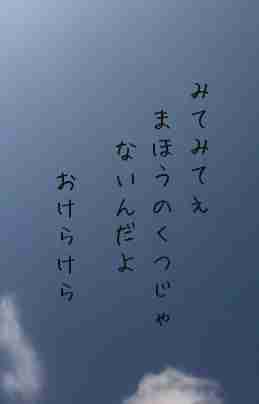 みてみてえ
まほうのくつじゃ
ないんだよ
おけらけら